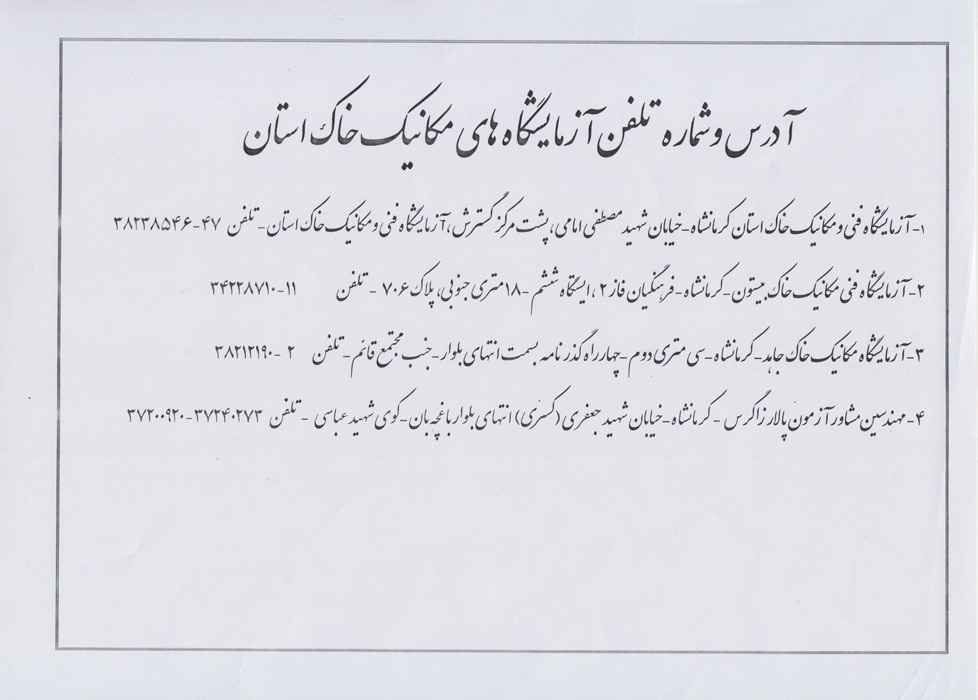 آدرس و شماره تلفن آزمایشگاه های مکانیک خاک استان
۱-آزمایشگاه فنی و مکانیک خاک استان کرمانشاه-خیابان شهید مصطفی امامی، پشت مرکز گسترش،آزمایشگاه فنی و مکانیک خاک استان- تلفن ۴۷-۳۸۲۳۸۵۴۶
۲-آزمایشگاه فنی مکانیک خاک بیستون-کرمانشاه-فرهنگیان فاز ۲،ایستگاه ششم -۱۸متری جنوبی، پلاک ۷۰۶ - تلفن ۱۱-۳۴۲۲۸۷۱۰
۳-آزمایشگاه مکانیک خاک جاهد-کرمانشاه-سی متری دوم-چهارراه گذرنامه بسمت انتهای بلوار-جنب مجتمع قائم-تلفن ۲ -۳۸۲۱۲۱۹۰
۴-مهندسین مشاور آزمون پالار زاگرس -کرمانشاه-خیابان شهید جعفری (کسری) انتهای بلوار باغچه بان-کوی شهید عباسی - تلفن ۳۷۲۴۰۲۷۳-۳۷۲۰۰۹۲۰